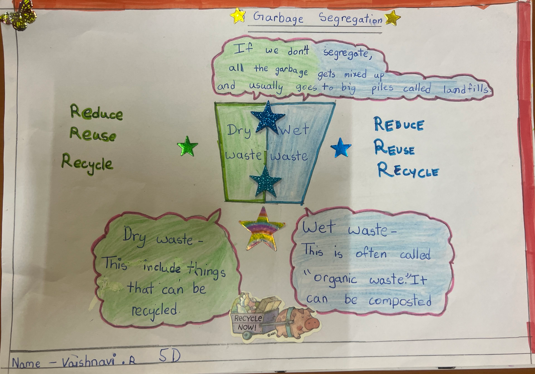 Garbage Segregation
If we don't segregate,
all the garbage gets mixed up
and usually goes to big piles called landfills
Reduce
Reuse
Recycle
Dry
waste
Wet
waste
REDUCE
REUSE
RECYCLE
Dry waste -
This include things
that can be
recycled.
Wet waste -
This is often called
"organic waste." It
can be composted
RECYCLE
NOW!
Name - Vaishnavi.R 5D